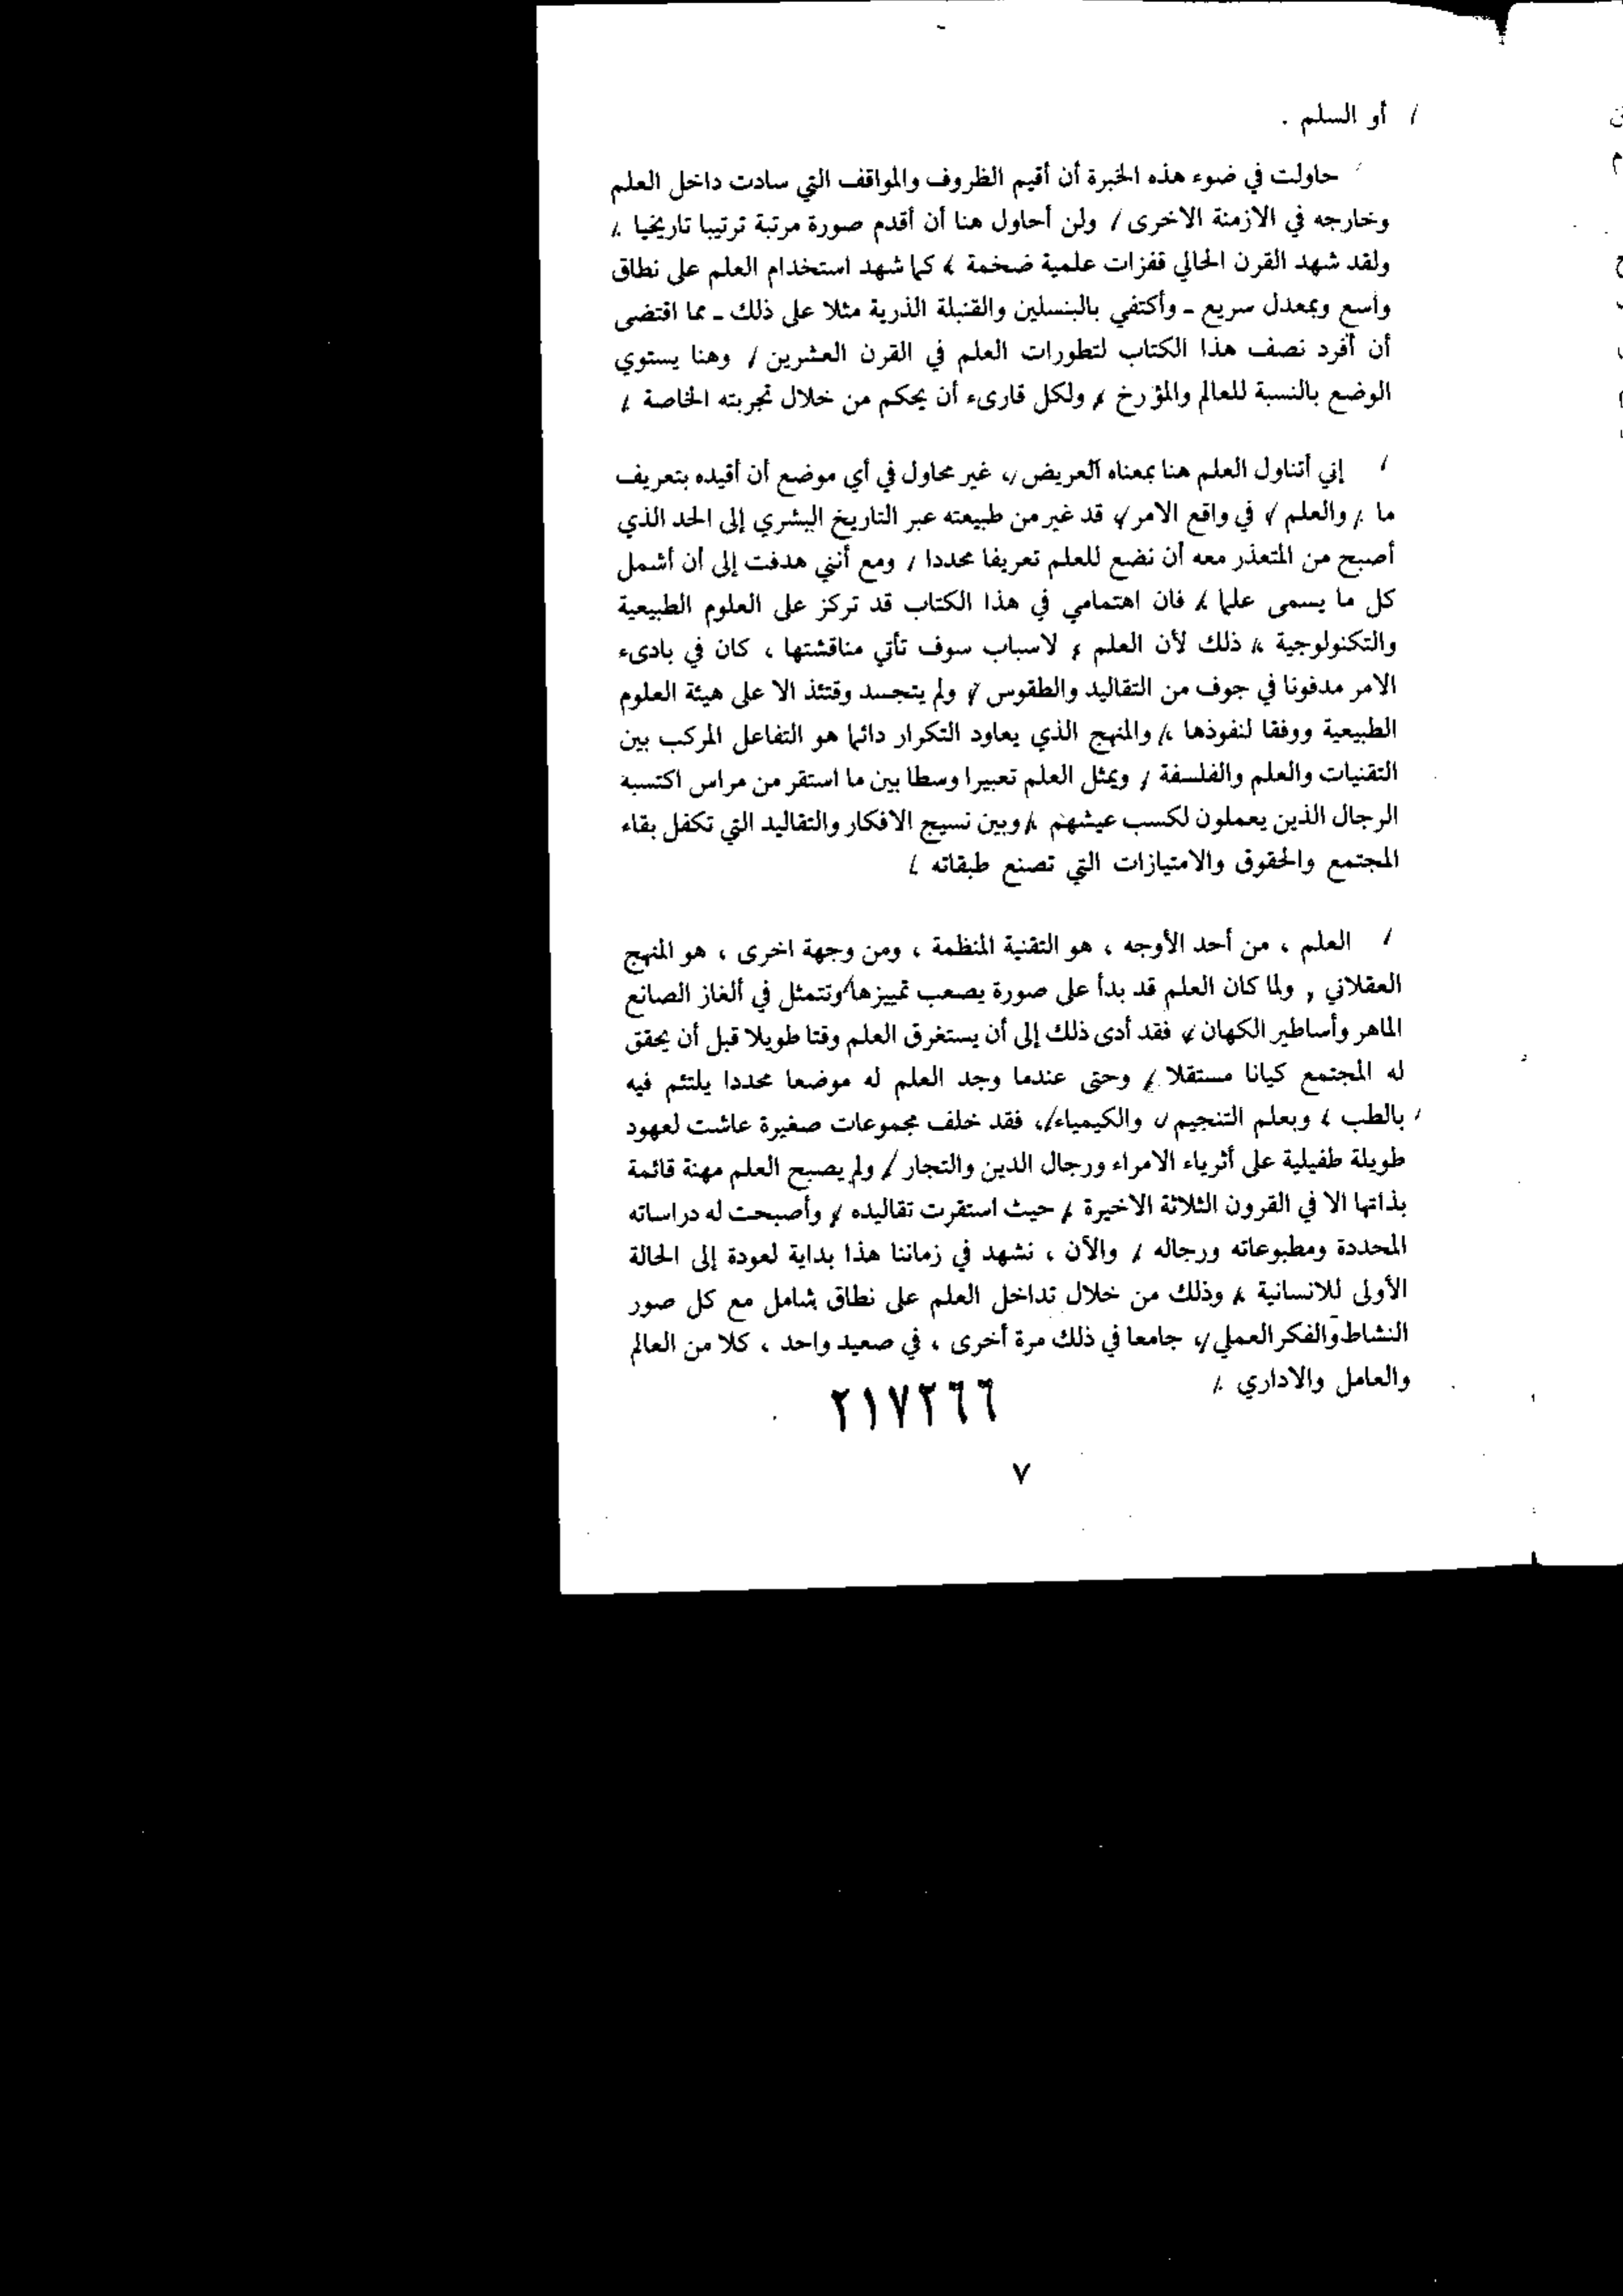 أو السلم .
حاولت في ضوء هذه الخبرة أن أقيم الظروف والمواقف التي سادت داخل العلم
وخارجه في الازمنة الاخرى / ولن أحاول هنا أن أقدم صورة مرتبة ترتيبا تاريخيا .
ولقد شهد القرن الحالي قفزات علمية ضخمة ، كما شهد استخدام العلم على نطاق
واسع وبمعدل سريع - وأكتفي بالبنسلين والقنبلة الذرية مثلا على ذلك - مما اقتضى
أن أفرد نصف هذا الكتاب لتطورات العلم في القرن العشرين / وهنا يستوي
الوضع بالنسبة للعالم والمؤرخ ، ولكل قارىء أن يحكم من خلال تجربته الخاصة .
إني أتناول العلم هنا بمعناه العريض ، غير محاول في أي موضع أن أقيده بتعريف
ما . والعلم ، في واقع الامر ، قد غير من طبيعته عبر التاريخ البشري إلى الحد الذي
أصبح من المتعذر معه أن نضع للعلم تعريفا محددا / ومع أنني هدفت إلى أن أشمل
كل ما يسمى علما ، فان اهتمامي في هذا الكتاب قد تركز على العلوم الطبيعية
والتكنولوجية ، ذلك لأن العلم ، لاسباب سوف تأتي مناقشتها ، كان في بادىء
الامر مدفونا في جوف من التقاليد والطقوس ، ولم يتجسد وقتئذ الا على هيئة العلوم
الطبيعية ووفقا لنفوذها ، والمنهج الذي يعاود التكرار دائما هو التفاعل المركب بين
التقنيات والعلم والفلسفة / ويمثل العلم تعبيرا وسطا بين ما استقر من مراس اكتسبه
الرجال الذين يعملون لكسب عيشهم ، وبين نسيج الافكار والتقاليد التي تكفل بقاء
المجتمع والحقوق والامتيازات التي تصنع طبقاته .
العلم ، من أحد الأوجه ، هو التقنية المنظمة ، ومن وجهة اخرى ، هو المنهج
العقلاني , ولما كان العلم قد بدأ على صورة يصعب تمييزها وتتمثل في ألغاز الصانع
الماهر وأساطير الكهان ، فقد أدى ذلك إلى أن يستغرق العلم وقتا طويلا قبل أن يحقق
له المجتمع كيانا مستقلا . وحتى عندما وجد العلم له موضعا محددا يلتئم فيه
بالطب ، وبعلم التنجيم ، والكيمياء ، فقد خلف مجموعات صغيرة عاشت لعهود
طويلة طفيلية على أثرياء الامراء ورجال الدين والتجار . ولم يصبح العلم مهنة قائمة
بذاتها الا في القرون الثلاثة الاخيرة ، حيث استقرت تقاليده ، وأصبحت له دراساته
المحددة ومطبوعاته ورجاله / والآن ، نشهد في زماننا هذا بداية لعودة إلى الحالة
الأولى للانسانية ، وذلك من خلال تداخل العلم على نطاق شامل مع كل صور
النشاط والفكر العملي ، جامعا في ذلك مرة أخرى ، في صعيد واحد ، كلا من العالم
والعامل والاداري .
٢١٧٢٦٦
٧